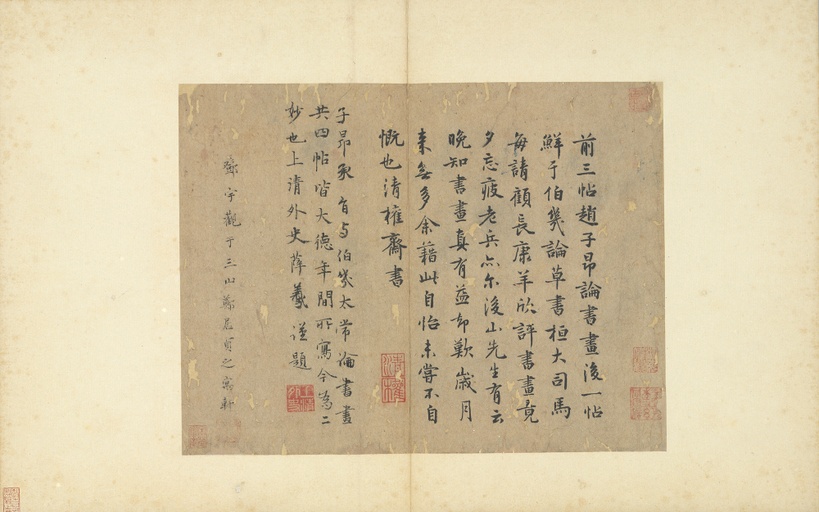 前三帖趙子昂論書畫後一帖
鮮于伯幾論草書桓大司馬
每請顧長康羊欣評書畫竟
夕忘疲老兵亦尓後山先生有云
晚知書畫真有益却歎歲月
来無多余藉此自怡未嘗不自
慨也清權齋書
子昂承旨与伯幾太常論書畫
共四帖皆大德年間所寫今為二
妙也上清外史薛羲謹題
鄧宇觀于三山
之寓軒
清權